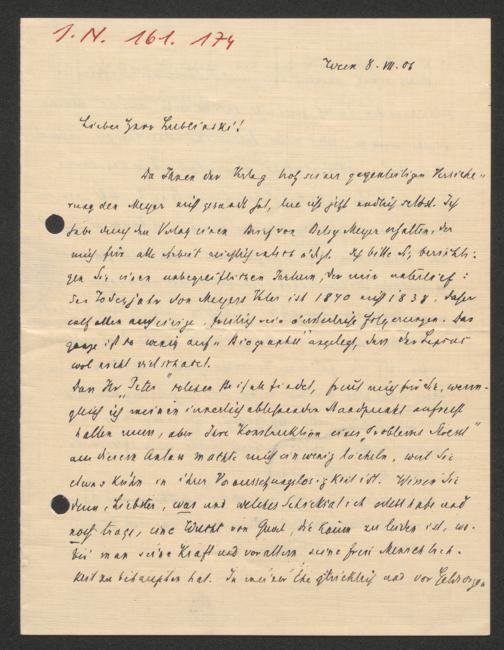 I. N. 161. 174
Wien 8. VII. 06
Lieber Herr Lublinski!
Da Ihnen der Verlag trotz seiner gegenteiligen Versiche-
rung den Meyer nicht gesandt hat, tue ich jetzt endlich selbst. Ich
habe durch den Verlag einen Brief von Betsy Meyer erhalten, der
mich für alle Arbeit reichlich entschädigt. Ich bitte Sie, berichti-
gen Sie einen unbegreiflichen Irrtum, der mir unterlief:
das Todesjahr von Meyers Vater ist 1840 nicht 1838. Daher
entfallen auch einige, freilich nur Folgerungen. Das
ganze ist so wenig auf „Biographie" angelegt, dass der Lapsus
wol nicht viel schadet.
Dass Ihr „Peter" solchen Beifall findet, freut mich für Sie, wenn-
gleich ich meinen innerlich ablehnenden Standpunkt aufrecht
halten muss, aber Ihre Konstruktion eines „Problems Stoessl"
aus diesem Anlass machte mich ein wenig lächeln, weil sie
etwas kühn in ihrer Voraussetzungslosigkeit ist. Wissen Sie
denn, Liebster, was und welches Schicksal ich erlebt habe und
noch trage, eine Wucht von Qual, die kaum zu leiden ist, wo-
bei man seine Kraft und vor allem seine freie Menschlich-
keit zu behaupten hat. In meiner Ehe glücklich und vor Geldsorgen